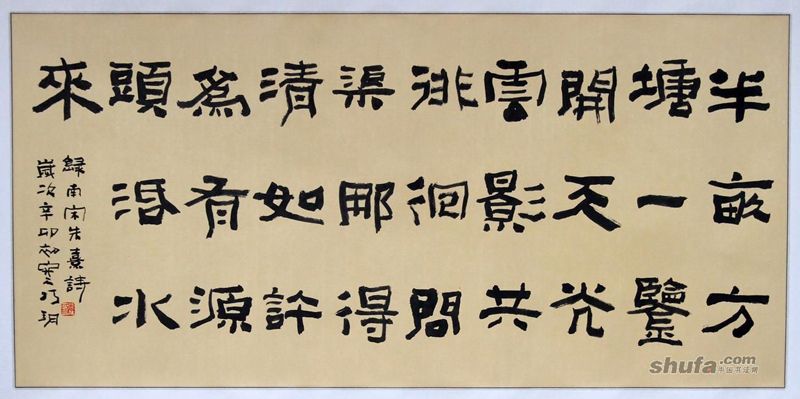 半畝方
塘一鑒
開天光
雲影共
徘徊問
渠那得
清如許
爲有源
頭活水
來
錄南宋朱熹詩
歲次辛卯初
shufa.com
中国书法网